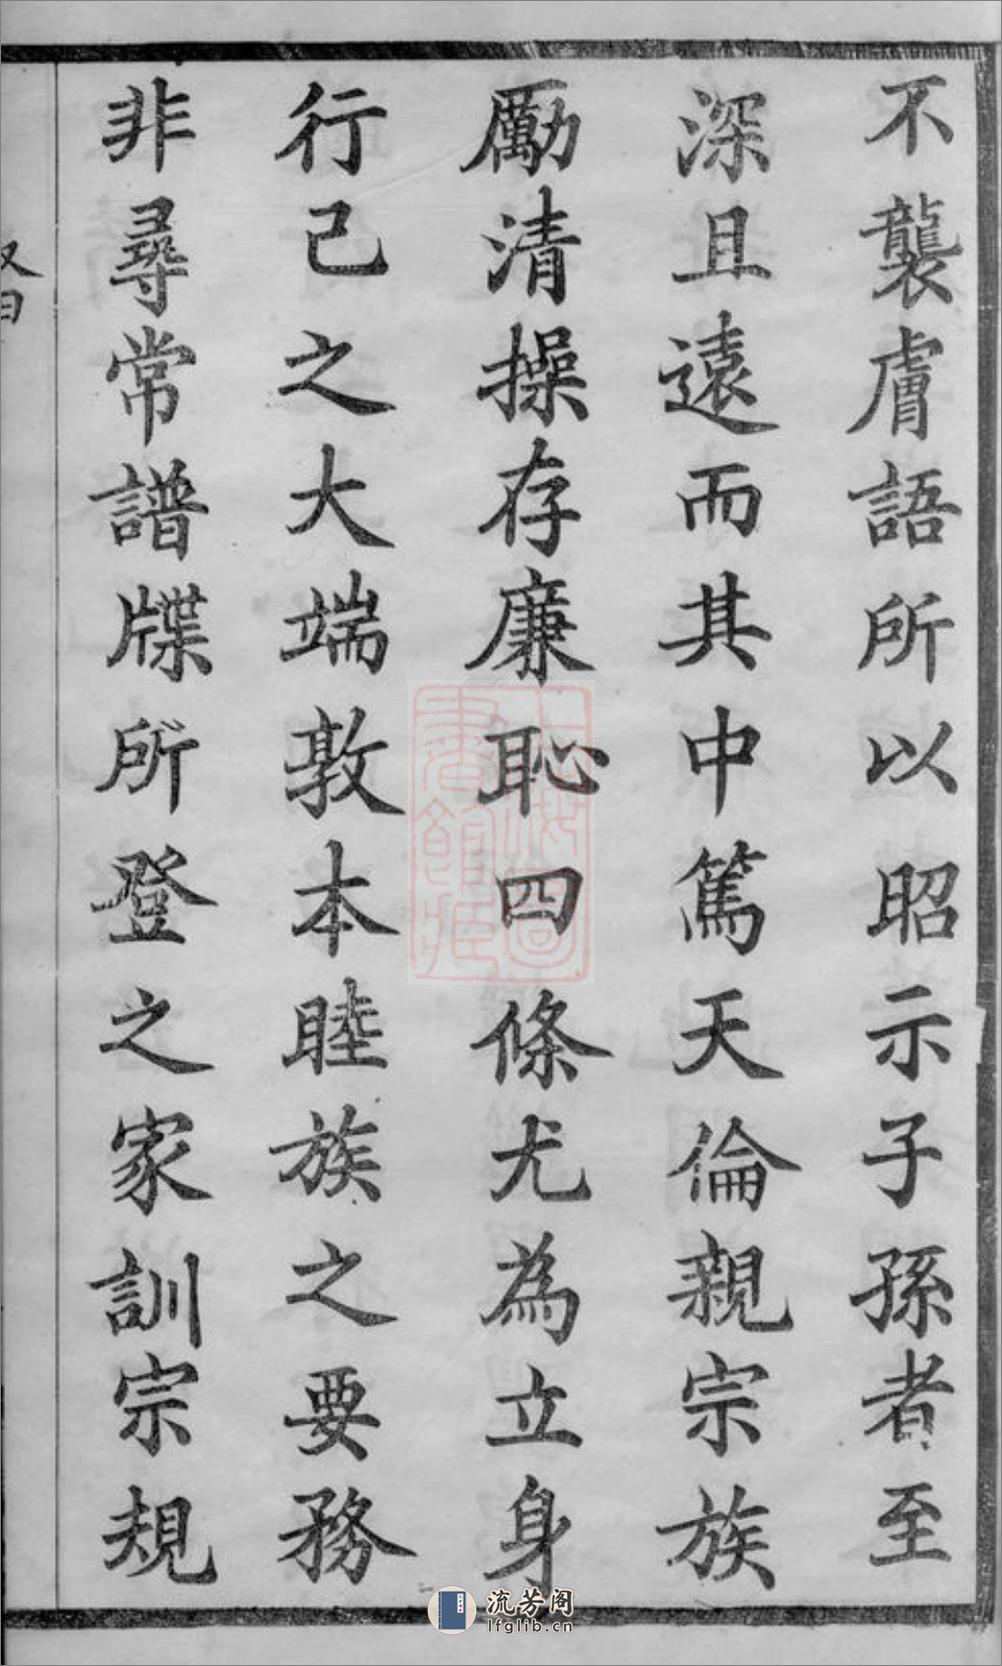 不襲膚語所以昭示子孫者至
深且遠而其中篤天倫親宗族
勵清操存廉恥四條尤為立身
行己之大端敦本睦族之要務
非尋常譜牒所登之家訓宗規
上海圖書館藏
流芳阁
lfglib.cn